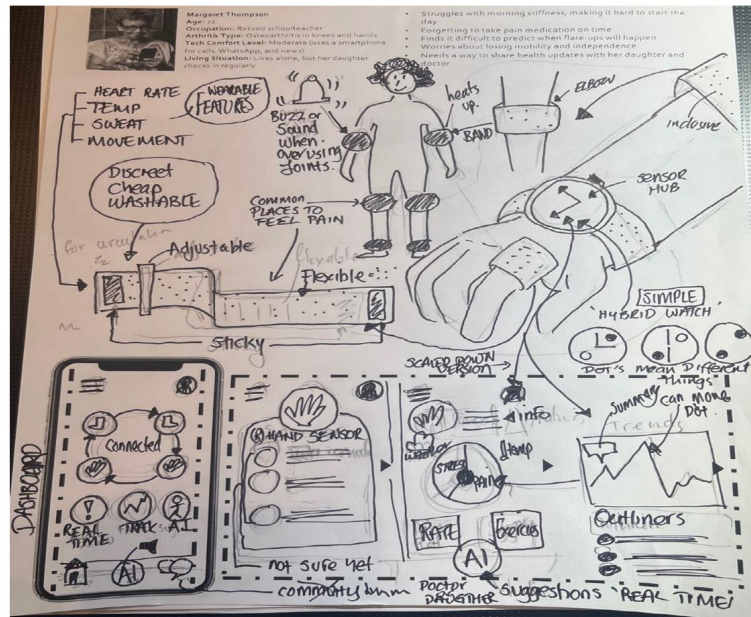 Margaret Thompson
Age: 72
Occupation: Retired schoolteacher
Arthritis Type: Osteoarthritis in knees and hands
Tech Comfort Level: Moderate (uses a smartphone
for calls, WhatsApp, and news)
Living Situation: Lives alone, but her daughter
checks in regularly
• Struggles with morning stiffness, making it hard to start the
day
• Forgetting to take pain medication on time
• Finds it difficult to predict when flare-ups will happen
• Worries about losing mobility and independence
• Needs a way to share health updates with her daughter and
doctor
HEART RATE
TEMP
SWEAT
MOVEMENT
WEARABLE
FEATURES
BUZZ or
Sound
When
Overusing
Joints.
heats
up.
BAND
ELBOW
inclusive
Discreet
Cheap
WASHABLE
Common
PLACES TO
FEEL PAIN
SENSOR
HUB
for
Adjustable
flexible
Flexible
Sticky
SIMPLE
'HYBRID WATCH'
DOT'S mean Different
things
SCALED DOWN
VERSION
DASHBOARD
Connected
REAL
TIME
TRACK
A.I
AI
(R) HAND SENSOR
not sure yet
community
info
weather
STRESS
RATE
Exercies
AI
DOCTOR
DAUGTHER
Suggestions 'REAL TIME'
Summary
Can move
DOT.
Trends
Outliners